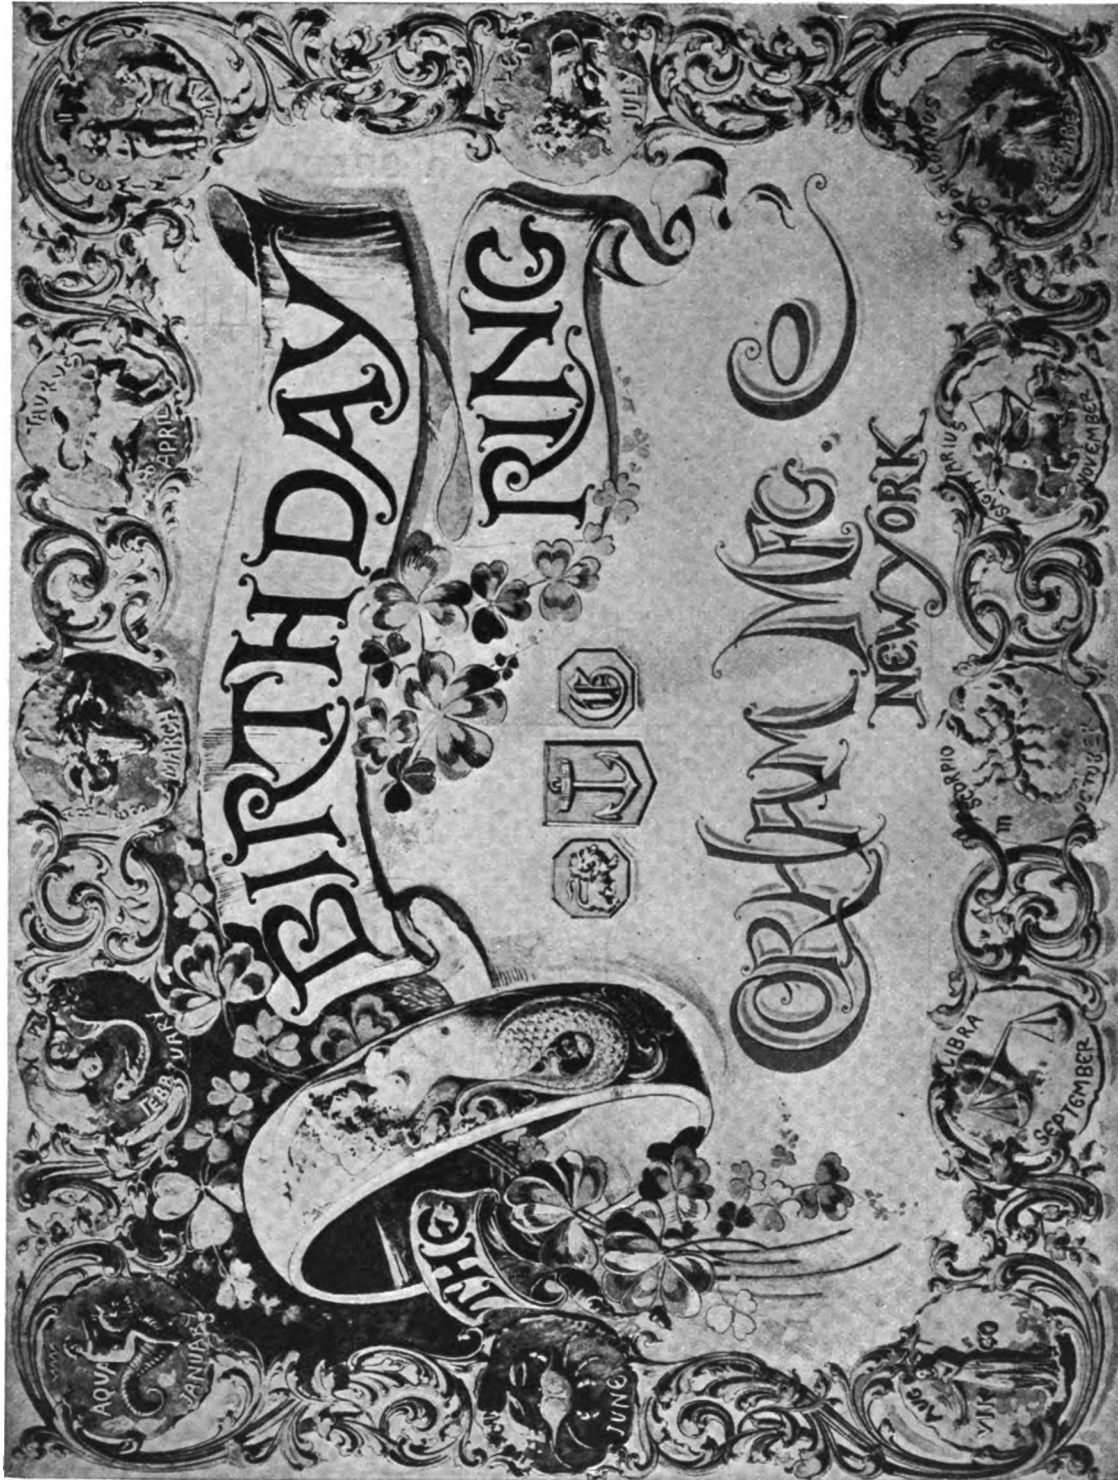 THE
BIRTHDAY
RING
GORHAM MFG. CO
NEW YORK
AQUA
JANUARY
FEBRUARY
ARIES
MARCH
TAURUS
APRIL
GEMINI
MAY
JUNE
JULY
AUG
VIRGO
LIBRA
SEPTEMBER
SCORPIO
OCTOBER
SAGITTARIUS
NOVEMBER
CAPRICORNUS
DECEMBER